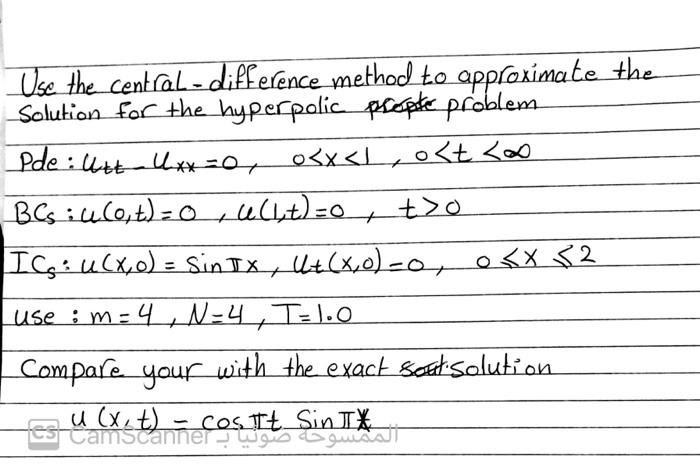 Use the central-difference method to approximate the
Solution for the hyperpolic problem
Pde : Utt - Uxx = 0, 0<x<1, 0<t<∞
BCs : u(0,t)=0, u(1,t)=0, t>0
ICs : u(x,0) = Sin πx, Ut(x,0)=0, 0⩽x⩽2
use : m=4, N=4, T=1.0
Compare your with the exact solution
u(x,t) = cos πt Sin πx
CS CamScanner الممسوحة ضوئيا بـ